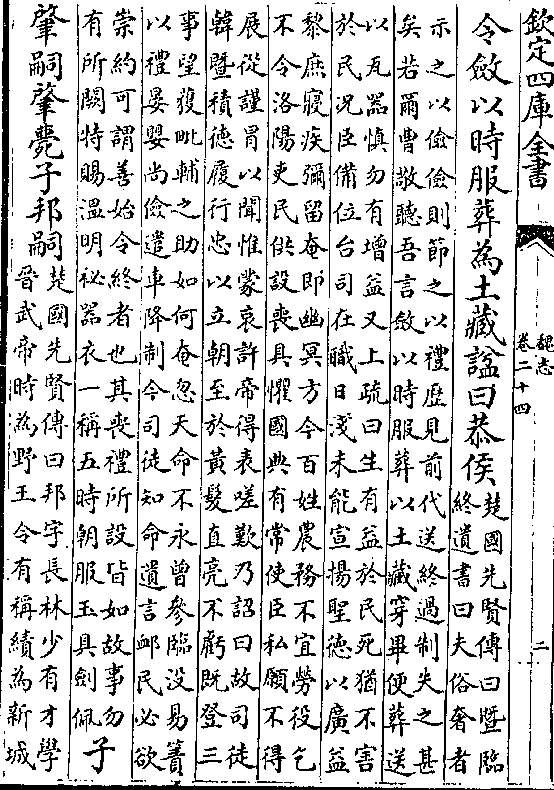 欽定四庫全書
魏志
卷二十四
二
令斂以時服葬為土藏諡曰恭侯
楚國先賢傳曰暨臨
終遺書曰夫俗奢者
示之以儉儉則節之以禮歷見前代送終過制失之甚
矣若爾曹敬聽吾言斂以時服葬以土藏穿畢便葬送
以瓦器慎勿有增益又上疏曰生有益於民死猶不害
於民況臣備位台司在職日淺未能宣揚聖德以廣益
黎庶寢疾彌留奄即幽冥方今百姓農務不宜勞役乞
不令洛陽吏民供設喪具懼國典有常使臣私願不得
展從謹冒以聞惟蒙哀許帝得表嗟歎乃詔曰故司徒
韓暨積德履行忠以立朝至於黃髮直亮不虧既登三
事望獲毗輔之助如何奄忽天命不永曾參臨没易簀
以禮晏嬰尚儉遣車降制今司徒知命遺言䘏民必欲
崇約可謂善始令終者也其喪禮所設皆如故事勿
有所闕特賜溫明祕器衣一稱五時朝服玉具劍佩
子
肇嗣肇薨子邦嗣
楚國先賢傳曰邦字長林少有才學
晉武帝時為野王令有稱績為新城